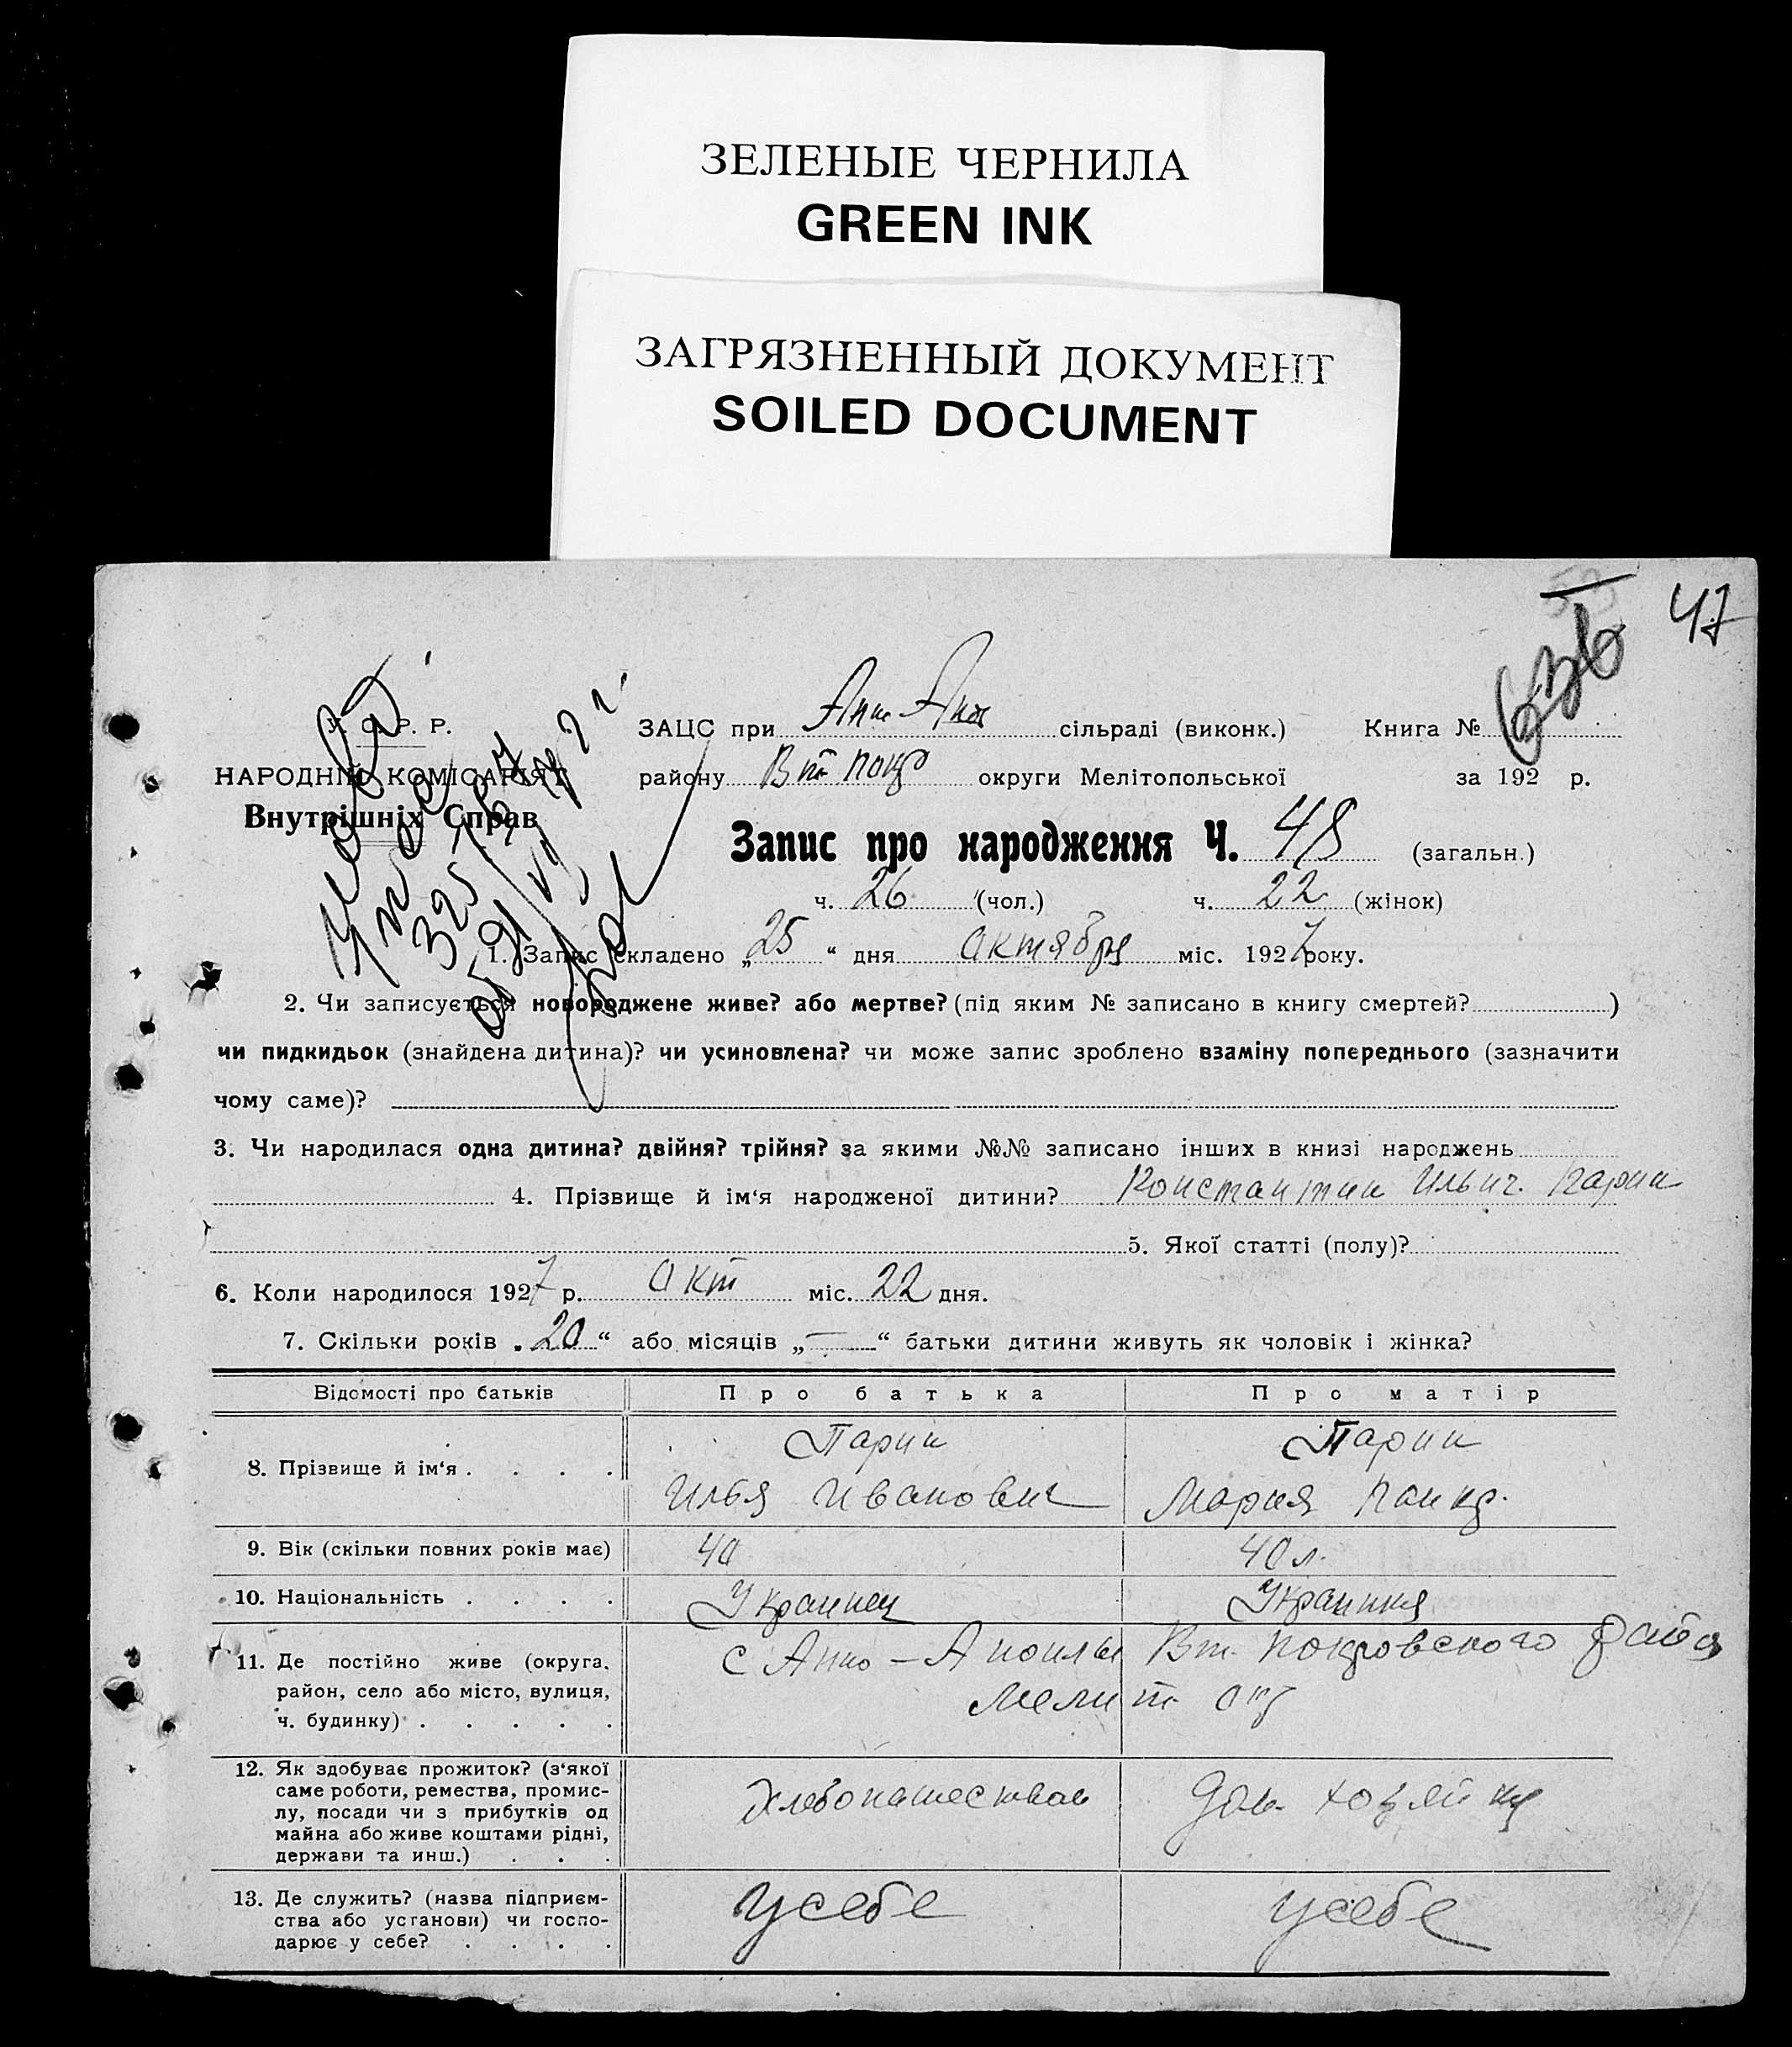 ЗЕЛЕНЫЕ ЧЕРНИЛА
GREEN INK
ЗАГРЯЗНЕННЫЙ ДОКУМЕНТ
SOILED DOCUMENT
47
636
У. С. Р. Р.
НАРОДНІЙ КОМІСАРІЯТ
Внутрішніх Справ
ЗАЦС при сільраді (виконк.) Книга №
району Вт. Покр округи Мелітопольської за 192 р.
Запис про народження Ч. 48 (загальн.)
ч. 26 (чол.) ч. 22 (жінок)
1. Запис складено „25“ дня октября міс. 1927 року.
2. Чи записується новороджене живе? або мертве? (під яким № записано в книгу смертей? )
чи пидкидьок (знайдена дитина)? чи усиновлена? чи може запис зроблено взаміну попереднього (зазначити
чому саме)?
3. Чи народилася одна дитина? двійня? трійня? за якими №№ записано інших в книзі народжень
4. Прізвище й ім‘я народженої дитини? Константин Ильич. Парин
5. Якої статті (полу)?
6. Коли народилося 1927 р. окт міс. 22 дня.
7. Скільки років „20“ або місяців „—“ батьки дитини живуть як чоловік і жінка?
Відомості про батьків Про батька Про матір
8. Прізвище й ім‘я . . . . Парин Илья Иванович Парин Мария
9. Вік (скільки повних років має) 40 40 л.
10. Національність . . . . Украинец Украинка
11. Де постійно живе (округа, район, село або місто, вулиця, ч. будинку) . . . . . с Анно- Вт. Покровского района Мелит. окр
12. Як здобуває прожиток? (з‘якої саме роботи, ремества, промислу, посади чи з прибутків од майна або живе коштами рідні, держави та инш.) . . . Хлебопашеством Дом. хозяйка
13. Де служить? (назва підприємства або установи) чи господарює у себе? . . . . у себе у себе